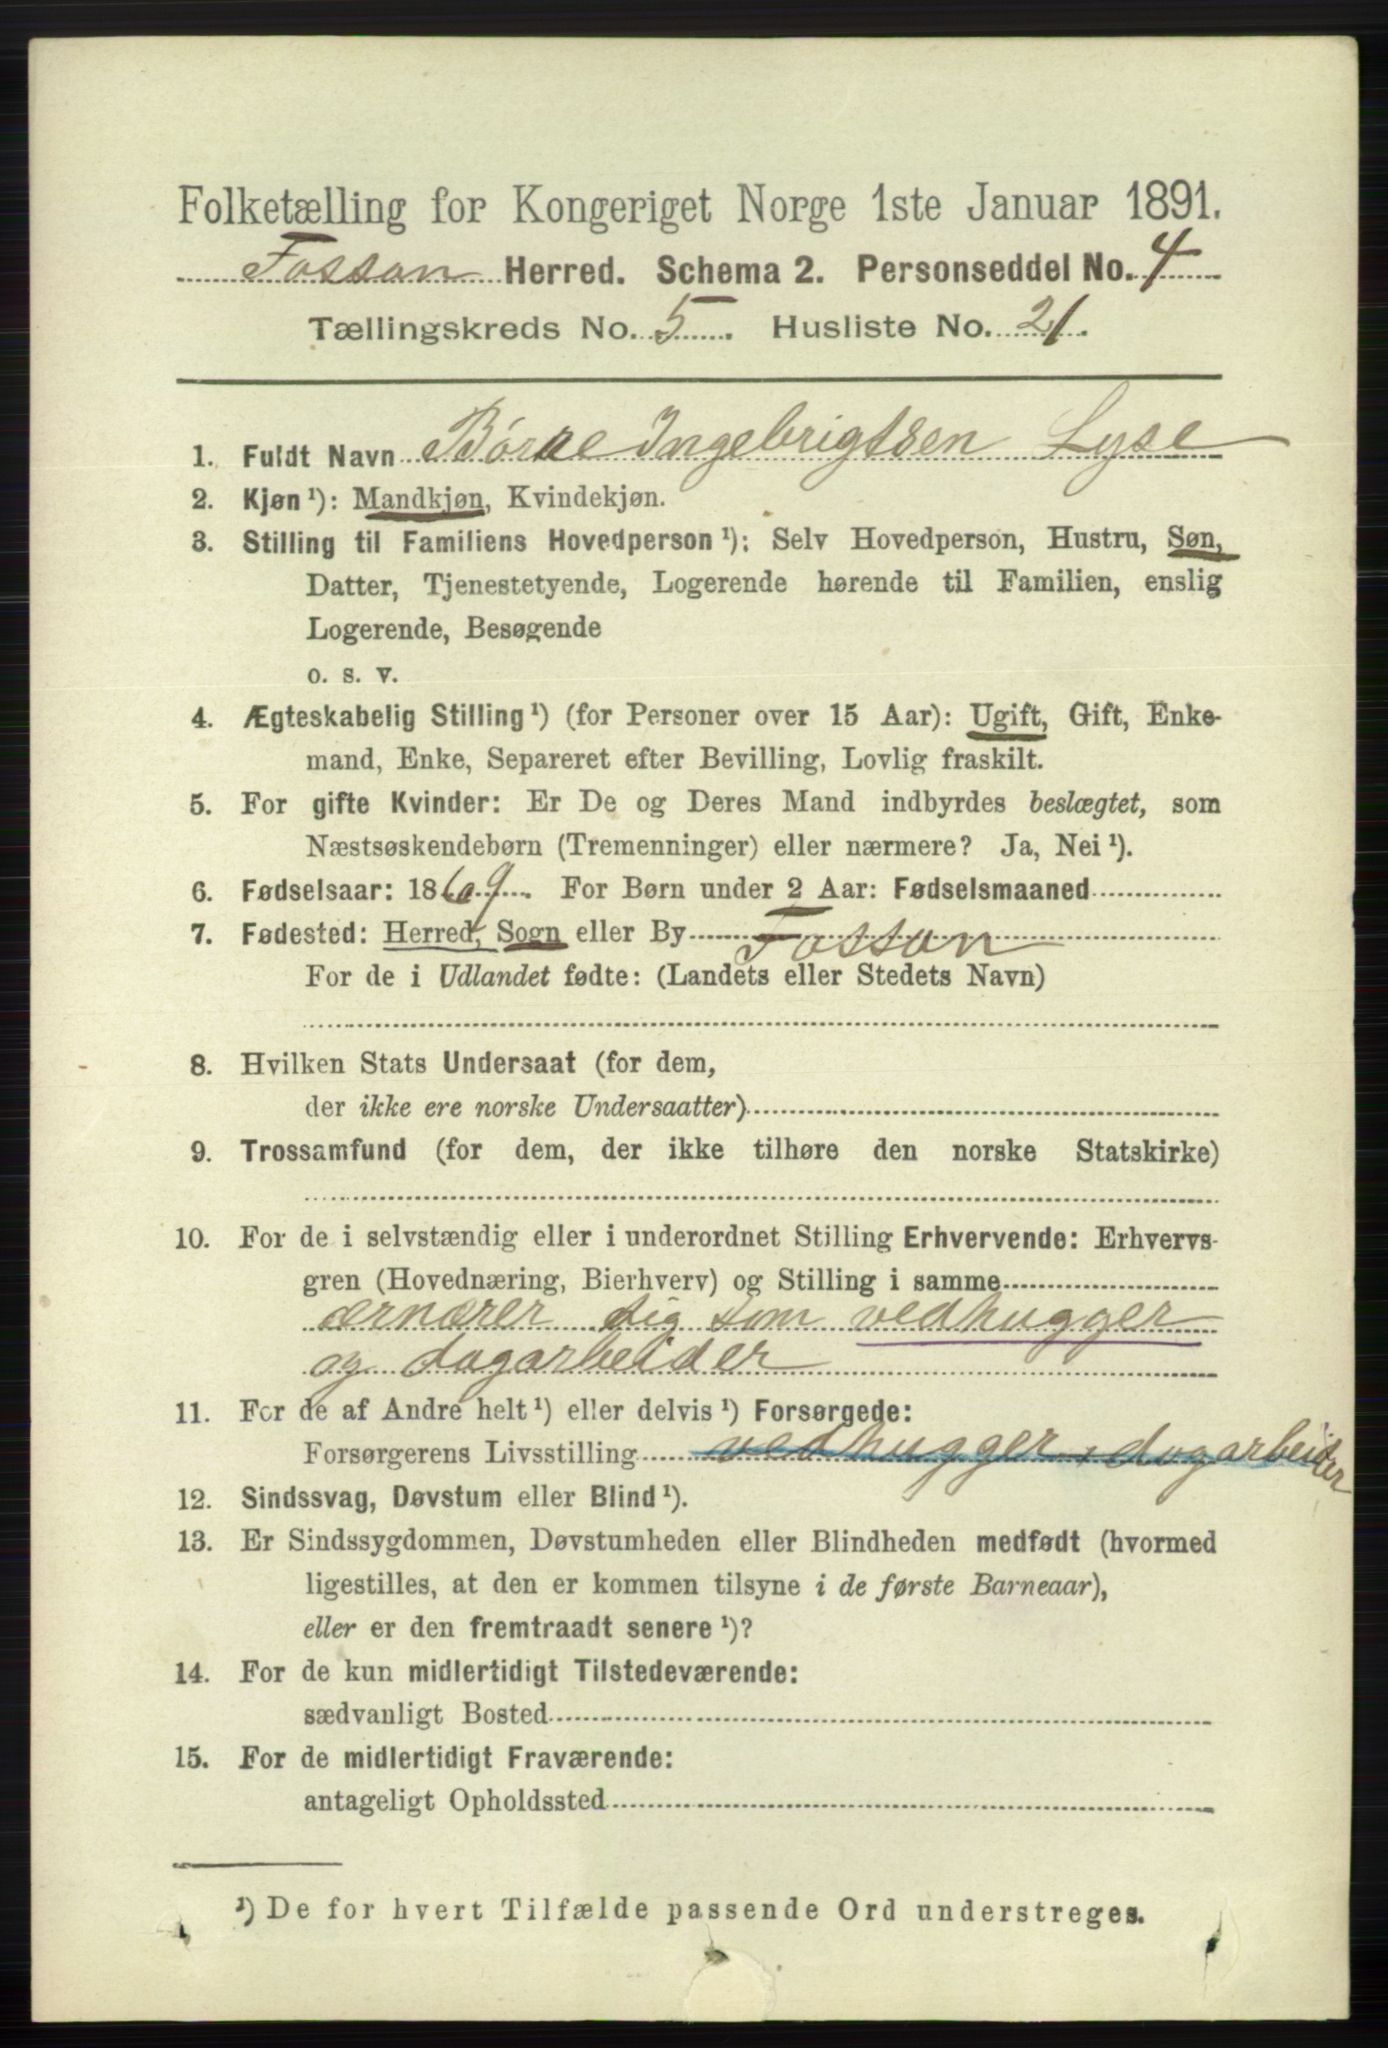 Folketælling for Kongeriget Norge 1ste Januar 1891.
Fossan Herred. Schema 2. Personseddel No. 4
Tællingskreds No. 5. Husliste No. 21.
1. Fuldt Navn Børre Ingebrigtsen Lyse
2. Kjøn ¹): Mandkjøn, Kvindekjøn.
3. Stilling til Familiens Hovedperson ¹): Selv Hovedperson, Hustru, Søn,
Datter, Tjenestetyende, Logerende hørende til Familien, enslig
Logerende, Besøgende
o. s. v.
4. Ægteskabelig Stilling ¹) (for Personer over 15 Aar): Ugift, Gift, Enke-
mand, Enke, Separeret efter Bevilling, Lovlig fraskilt.
5. For gifte Kvinder: Er De og Deres Mand indbyrdes beslægtet, som
Næstsøskendebørn (Tremenninger) eller nærmere? Ja, Nei ¹).
6. Fødselsaar: 1869. For Børn under 2 Aar: Fødselsmaaned
7. Fødested: Herred, Sogn eller By Fossan
For de i Udlandet fødte: (Landets eller Stedets Navn)
8. Hvilken Stats Undersaat (for dem,
der ikke ere norske Undersaatter)
9. Trossamfund (for dem, der ikke tilhøre den norske Statskirke)
10. For de i selvstændig eller i underordnet Stilling Erhvervende: Erhvervs-
gren (Hovednæring, Bierhverv) og Stilling i samme
ærnærer sig som vedhugger
og dagarbeider
11. For de af Andre helt ¹) eller delvis ¹) Forsørgede:
Forsørgerens Livsstilling vedhugger, dagarbeider
12. Sindssvag, Døvstum eller Blind ¹).
13. Er Sindssygdommen, Døvstumheden eller Blindheden medfødt (hvormed
ligestilles, at den er kommen tilsyne i de første Barneaar),
eller er den fremtraadt senere ¹)?
14. For de kun midlertidigt Tilstedeværende:
sædvanligt Bosted
15. For de midlertidigt Fraværende:
antageligt Opholdssted
¹) De for hvert Tilfælde passende Ord understreges.